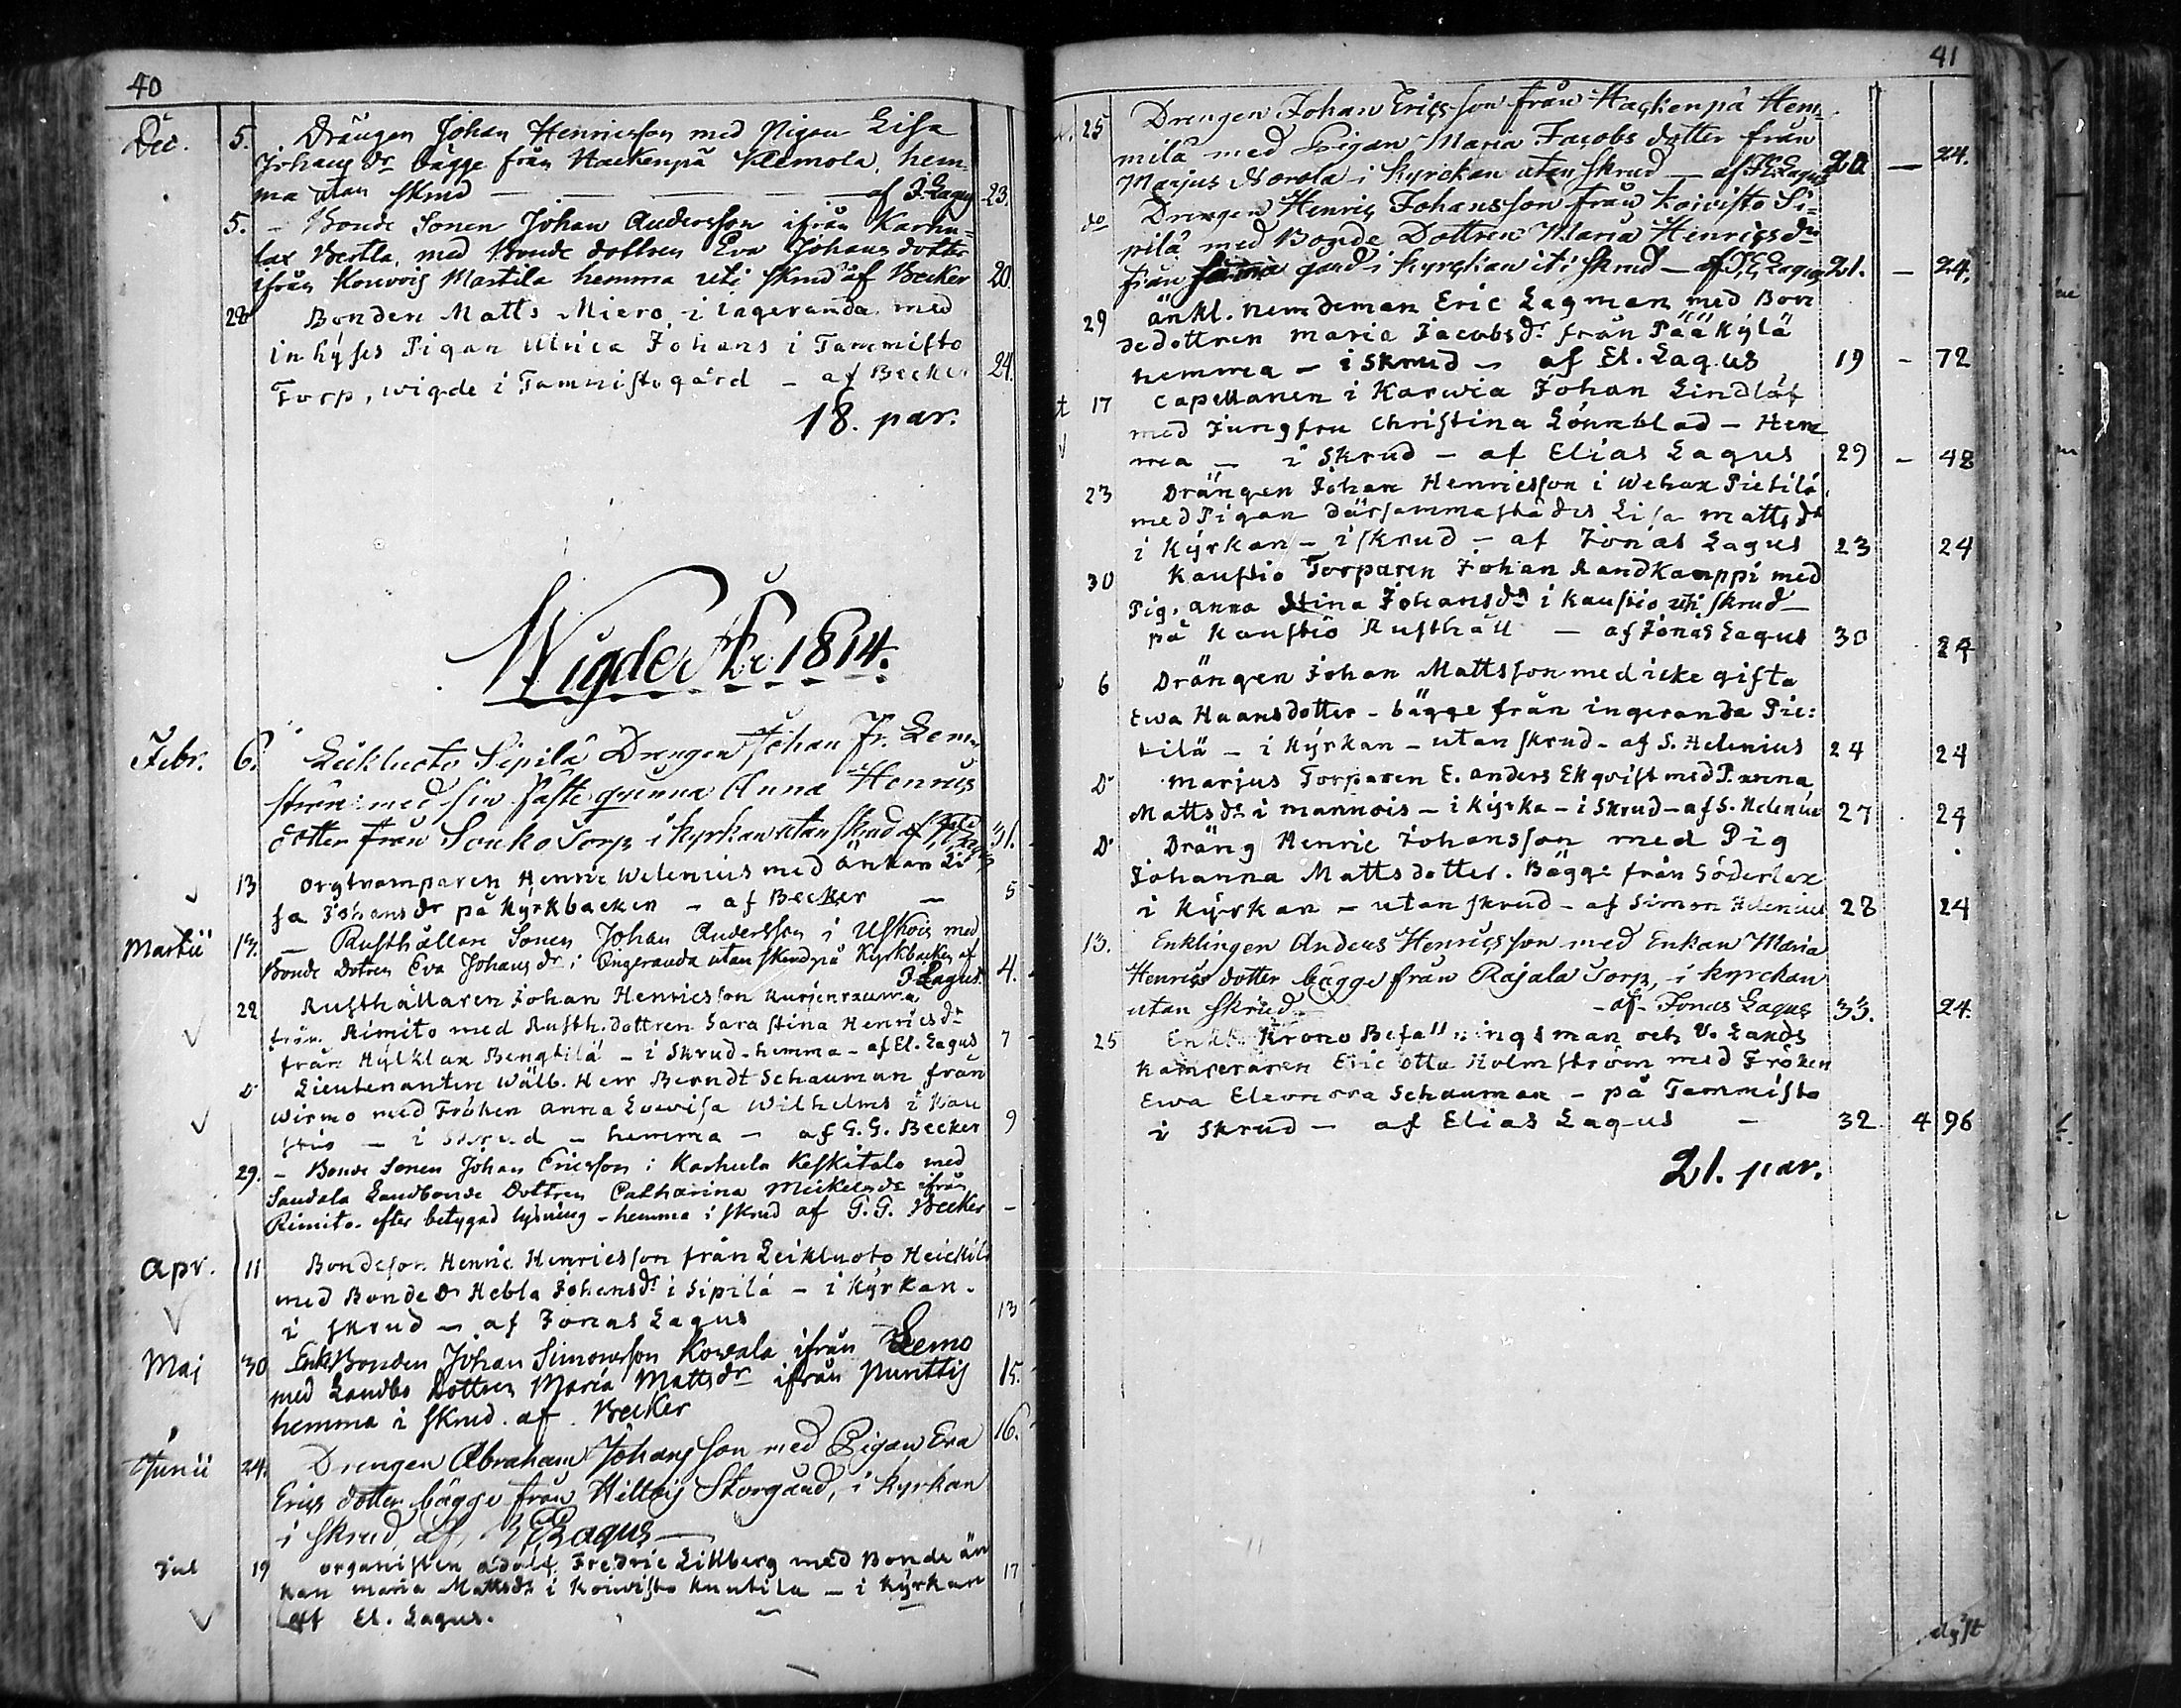 40
Dec. 5. Drängen Johan Henricsson med Pigan Lisa
Johans dr bägge från Hackenpä Klemola, hem-
ma utan skrud — af J. Lagus 23.
5. – Bonde Sonen Johan Andersson ifrån Karhu-
lax Bertla, med Bonde dottren Eva Johans dotter
ifrån Kouvois Martila hemma uti skrud af Becker 20.
28 Bonden Matts Miero i ingeranda med
inhyses Pigan Ulrica Johans i Tammisto
Torp, wigde i Tammisto gård – af Becker 24.
18. par.
Wigde År 1814.
Febr. 6. Leikluoto Sipilä Drengen Johan Fr. Lem-
ström med sin Fästeqvinna Anna Henrics
dotter från Souko Torp i kyrkan utan skrud af Lagus 31.
13 Orgtramparen Henric Welenius med Änkan Li-
sa Johans dr på Kyrkbacken – af Becker – 5
Martii – Rusthållare Sonen Johan Andersson i Uskois med
Bonde Dotren Eva Johans dr i Ingeranda utan skrud på Kyrkbacken af
J Lagus. 4.
22 Rusthållaren Johan Henricsson Kurjenrauma
från Rimito med Rusth. dottren Sara Stina Henricsdr
från Hylklax Bengtilä – i Skrud – hemma – af El. Lagus 7
Do Lieutenanten Wälb. Herr Berndt Schauman från
Wirmo med Fröken Anna Lovisa Wilhelms i Kau
stio – i Skrud – hemma – af G. G. Becker 9
29. – Bonde Sonen Johan Ericsson i Karhula Keskitalo med
Sandala Landbonde Dottren Catharina Mickelsdr ifrån
Rimito. efter betygad lysning – hemma i skrud af G. G. Becker –
Apr. 11 Bondeson Henric Henricsson från Leikluoto Heickilä
med Bonde Dr Hebla Johansdr i Sipilä – i Kyrkan.
i skrud – af Jonas Lagus 13
Maj 30 Enkl. Bonden Johan Simonsson Kowala ifrån Lemo
med Landbo Dottren Maria Mattsdr ifrån Punttis 15.
hemma i skrud. af Becker
Junii 24. Drengen Abraham Johansson med Pigan Eva 16.
Erics dotter bägge från Hiltois Storgård, i kyrkan
i skrud, af Lagus —
Jul 19 organisten Adolf Fredric Lillberg med Bonde än
kan Maria Mattsdr i Koivisto Knutila – i Kyrkan 17
af El. Lagus.
41
25 Drengen Johan Ericsson från Hackenpä Hem-
milä med Pigan Maria Jacobs dotter från
Marjus Norola i Kyrckan utan skrud – af J E Lagus 20 – 24.
do Drengen Henric Johansson från Koivisto Si-
pilä med Bonde Dottren Maria Henricsdr
från samma gård i kyrckan iti skrud – af J. E. Lagus 21. – 24.
29 änkl. nemdeman Eric Lagman med Bon
dedottren Maria Jacobsdr från Pääkylä
hemma – i Skrud – af El. Lagus 19 – 72
17 Capellanen i Karwia Johan Lindlöf
med Jungfru Christina Lönnblad – Hem
ma – i Skrud – af Elias Lagus 29 – 48
23 Drängen Johan Henricsson i Wehax Pietilä
med Pigan därsammastädes Lisa Mattsdr
i Kyrkan – i skrud – af Jonas Lagus 23 24
30 Kaustio Torparen Johan Randkamppi med
Pig. Anna Stina Johansdr i Kaustio uti skrud –
på Kaustio Rusthåll – af Jonas Lagus 30 24
6 Drängen Johan Mattsson med icke gifta
Ewa Haansdotter – bägge från ingeranda Pie:
tilä – i Kyrkan – utan skrud – af S. Helenius 24 24
Do Marjus Torparen E. Anders Ekqvist med P. Anna
Mattsdr i Mannois – i Kyrka – i Skrud – af S. Helenius 27 24
Do Dräng Henric Johansson med Pig
Johanna Mattsdotter. Bägge från Söderlax
i Kyrkan – utan skrud – af Simon Helenius 28 24
13. Enklingen Anders Henricsson med Enkan Maria
Henrics dotter bägge från Rajala Torp, i kyrckan
utan skrud – af Jonas Lagus 33. 24.
25 Enkl. Krono Befallningsman och V. Lands
Kamreraren Eric Otto Holmström med Fröken
Ewa Eleonora Schauman – på Tammisto
i Skrud – af Elias Lagus – 32 4 96
21. par.